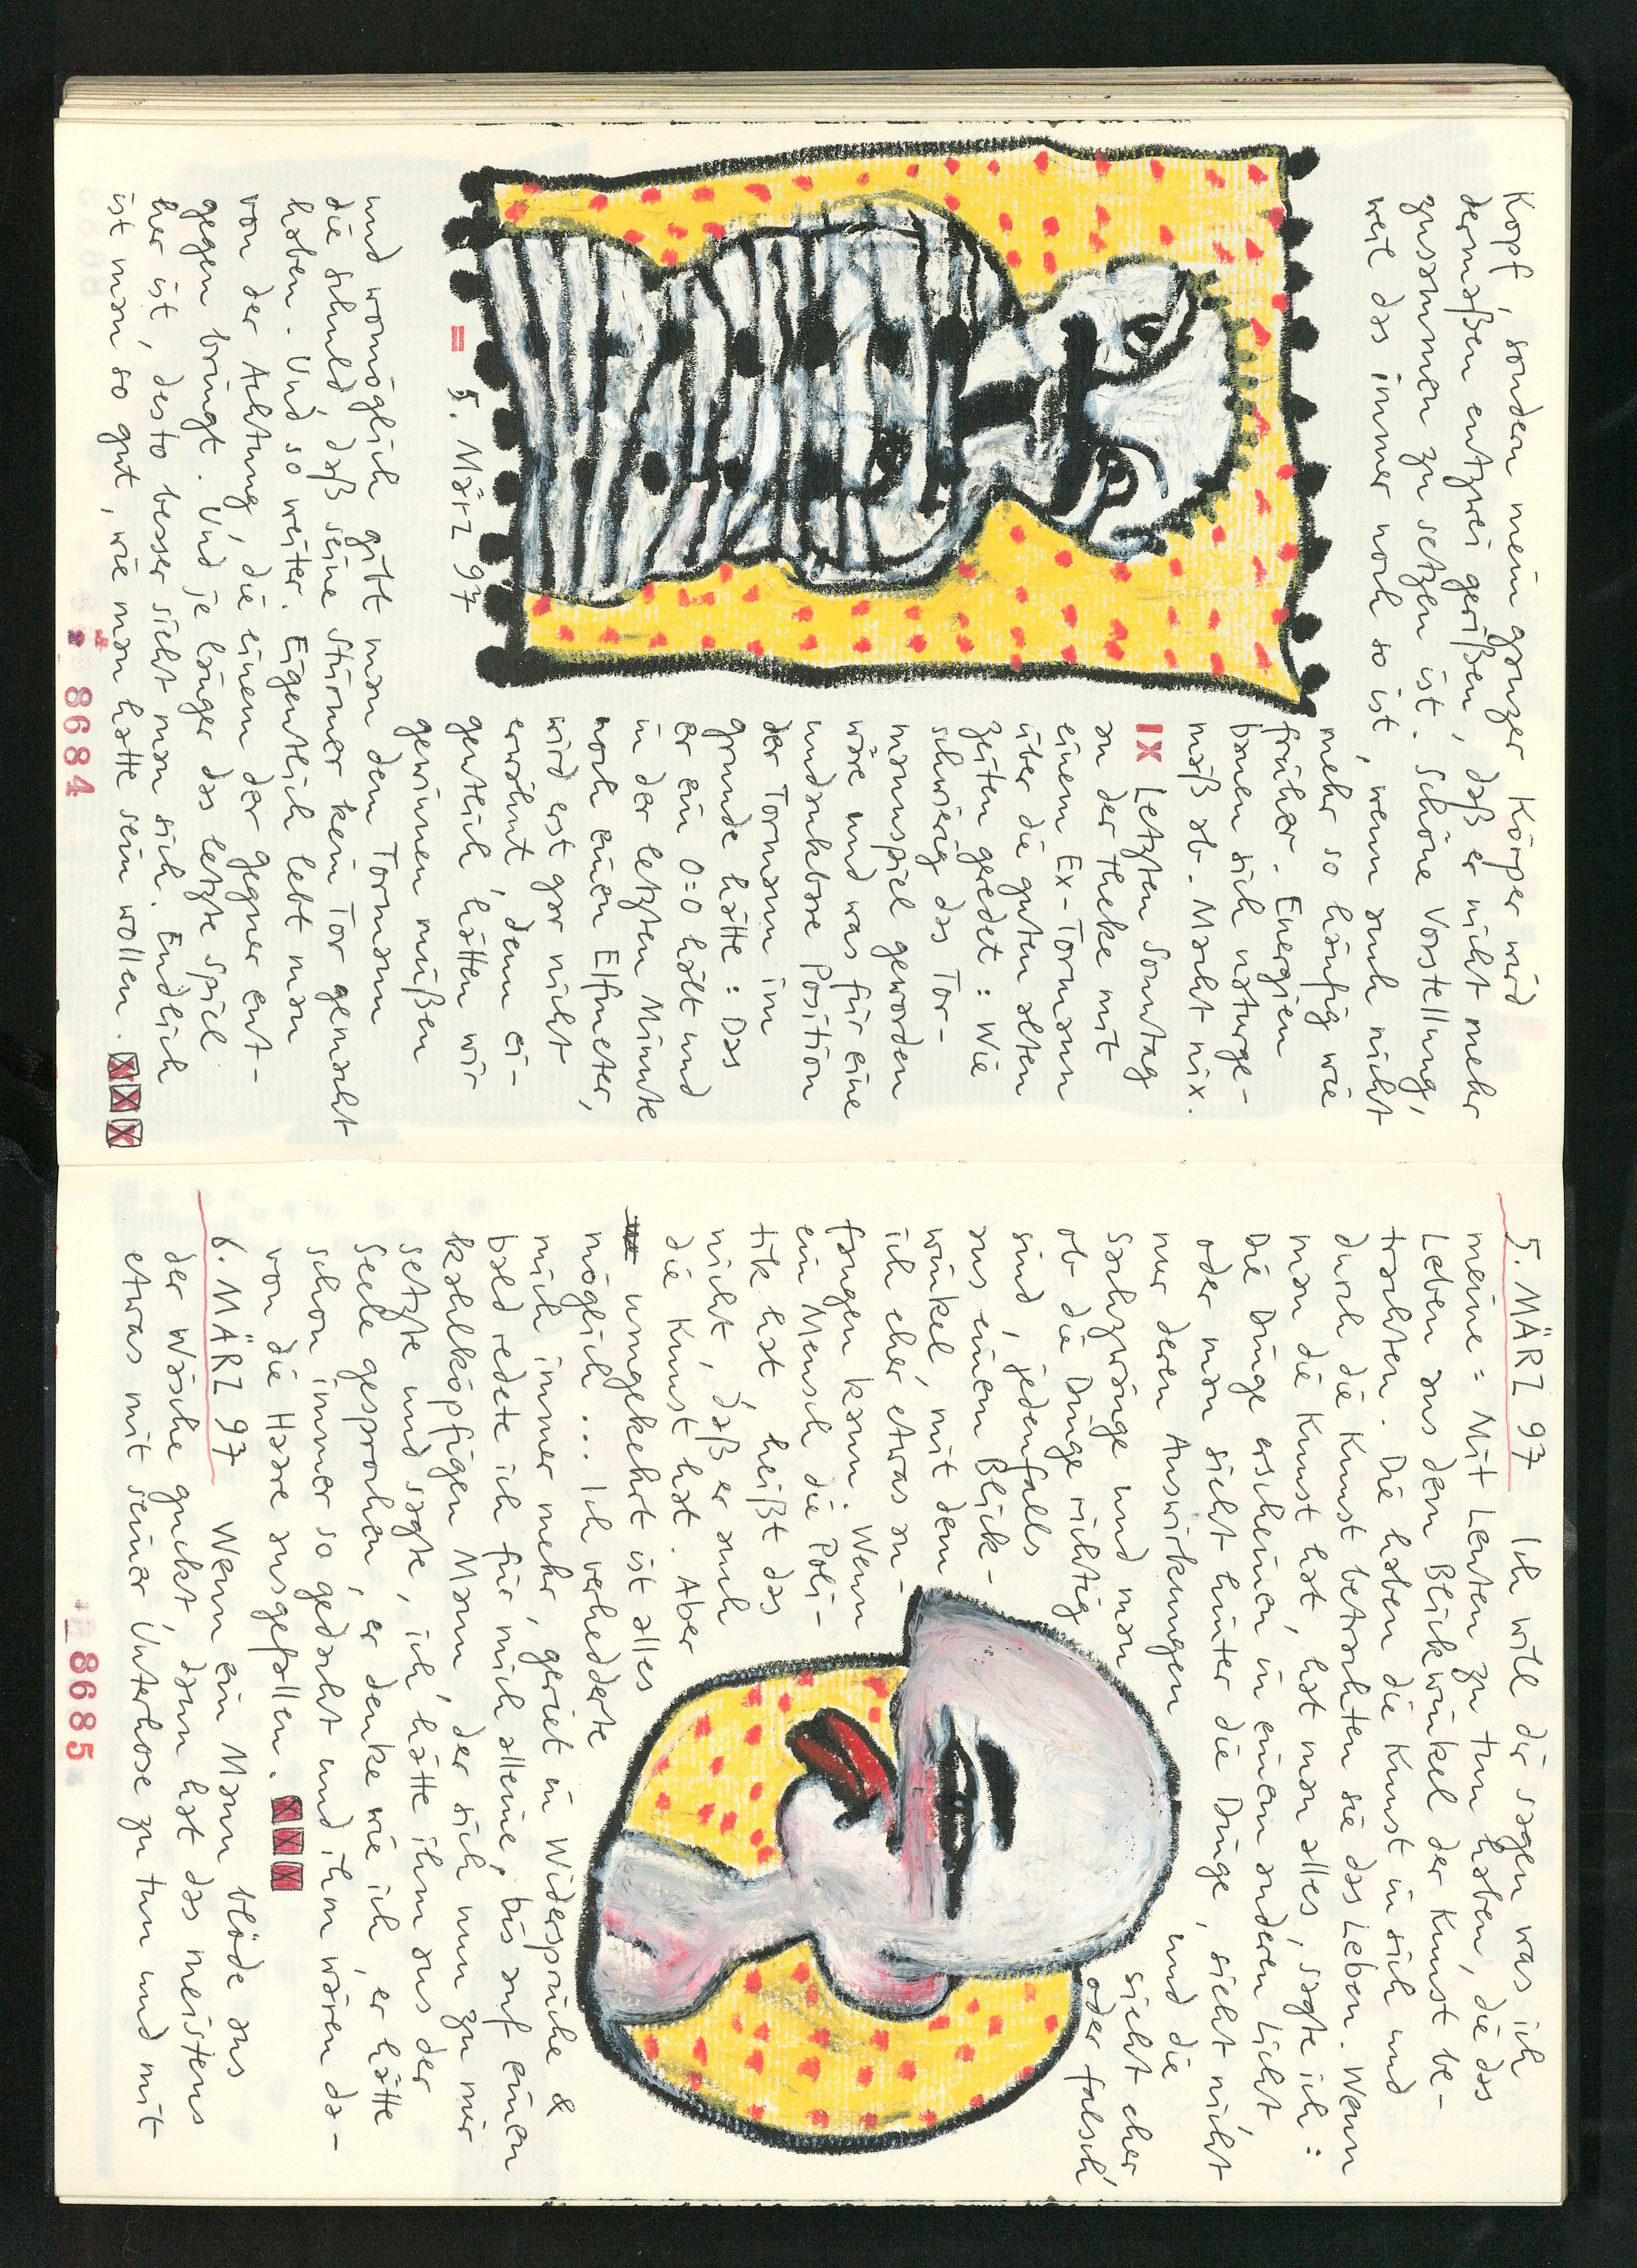 Kopf, sondern mein ganzer Körper wird
dermaßen entzwei gerißen, daß er nicht mehr
zusammen zu setzen ist. Schöne Vorstellung,
weil das immer noch so ist, wenn auch nicht
mehr so häufig wie
früher. Energien
bauen sich naturge-
mäß ab. Macht nix.
IX Letzten Sonntag
an der Theke mit
einem Ex-Tormann
über die guten alten
Zeiten geredet: Wie
schwierig das Tor-
mannspiel geworden
wäre und was für eine
undankbare Position
der Tormann im
Grunde hätte: Das
er ein 0:0 hält und
in der letzten Minute
noch einen Elfmeter,
wird erst gar nicht
erwähnt, denn ei-
gentlich hätten wir
gewinnen müßen
= 5. März 97
und womöglich gibt man dem Tormann
die schuld, daß seine Stürmer kein Tor gemacht
haben. Und so weiter. Eigentlich lebt man
von der Achtung, die einem der Gegner ent-
gegen bringt. Und je länger das letzte Spiel
her ist, desto besser sieht man sich. Endlich
ist man so gut, wie man hätte sein wollen. XXX
8684
5. MÄRZ 97 Ich will dir sagen was ich
meine: Mit Leuten zu tun haben, die das
Leben aus dem Blickwinkel der Kunst be-
trachten. Die haben die Kunst in sich und
durch die Kunst betrachten sie das Leben. Wenn
man die Kunst hat, hat man alles, sagte ich:
Die Dinge erscheinen in einem anderen Licht
oder man sieht hinter die Dinge, sieht nicht
nur deren Auswirkungen und die
Sachzwänge und man sieht eher
ob die Dinge richtig oder falsch
sind, jedenfalls
aus einem Blick-
winkel, mit dem
ich eher etwas an-
fangen kann. Wenn
ein Mensch die Poli-
tik hat, heißt das
nicht, daß er auch
die Kunst hat. Aber
umgekehrt ist alles
möglich... Ich verhedderte
mich immer mehr, geriet in Widersprüche &
bald redete ich für mich alleine, bis auf einen
kahlköpfigen Mann, der sich nun zu mir
setzte und sagte, ich hätte ihm aus der
Seele gesprochen, er denke wie ich, er hätte
schon immer so gedacht und ihm wären da-
von die Haare ausgefallen. XXX
6. MÄRZ 97 Wenn ein Mann blöde aus
der Wäsche guckt, dann hat das meistens
etwas mit seiner Unterhose zu tun und mit
8685